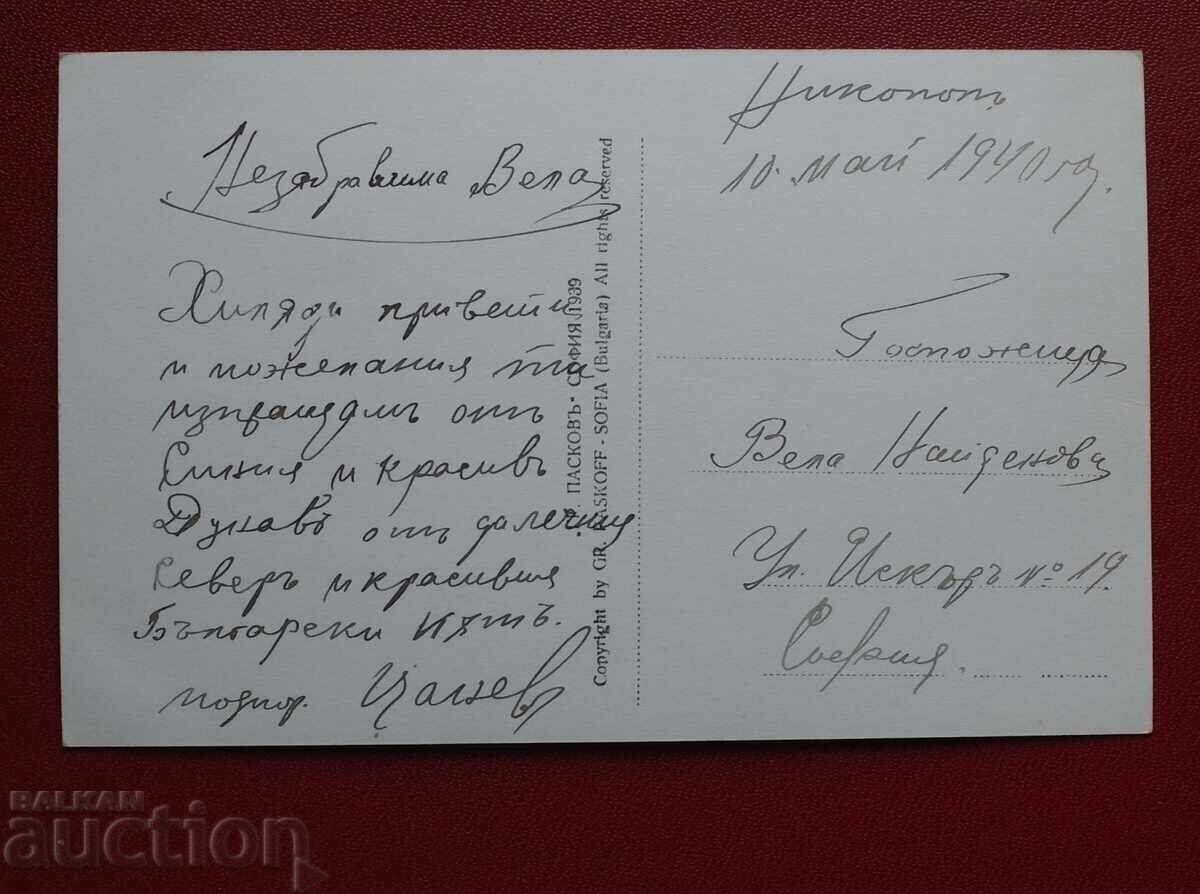 Незабравима Вела
Хиляди привети
и пожелания ти
изпращамъ отъ
синия и красивъ
Дунавъ отъ далечния
северъ и красивия
Български кѫтъ.
подпор. Цанев
Никополъ
10. май 1940 год.
Госпожица
Вела Найденова
Ул. Искъръ № 19
София.
ПАСКОВЪ - СОФИЯ 1939
Copyright by GR. PASKOFF - SOFIA (Bulgaria) All rights reserved
BALKAN
auction